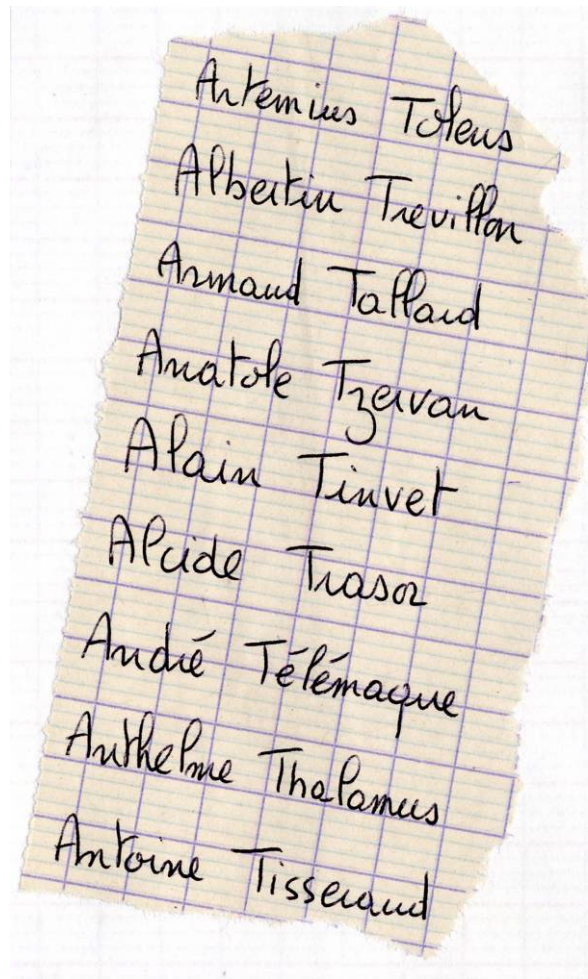 Artemius Toleus
Albertin Trevillon
Armaud Tallard
Anatole Tzervan
Alain Tinvet
Alcide Trasor
André Télémaque
Anthelme Thalamus
Antoine Tisserand